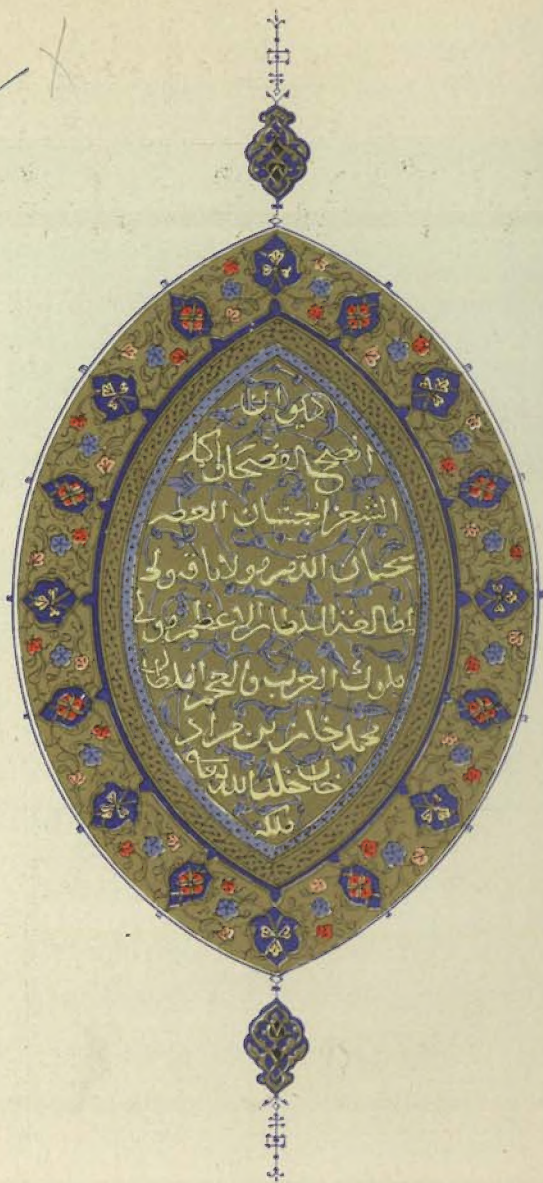 ديوان
افصح الفصحا اكمل
الشعرا حسان العصر
سحبان الدهر مولانا قبولى
لمطالعة السلطان الاعظم مولى
ملوك العرب والعجم السلطان
محمد خان بن مراد
خان خلد الله تعالى
ملكه